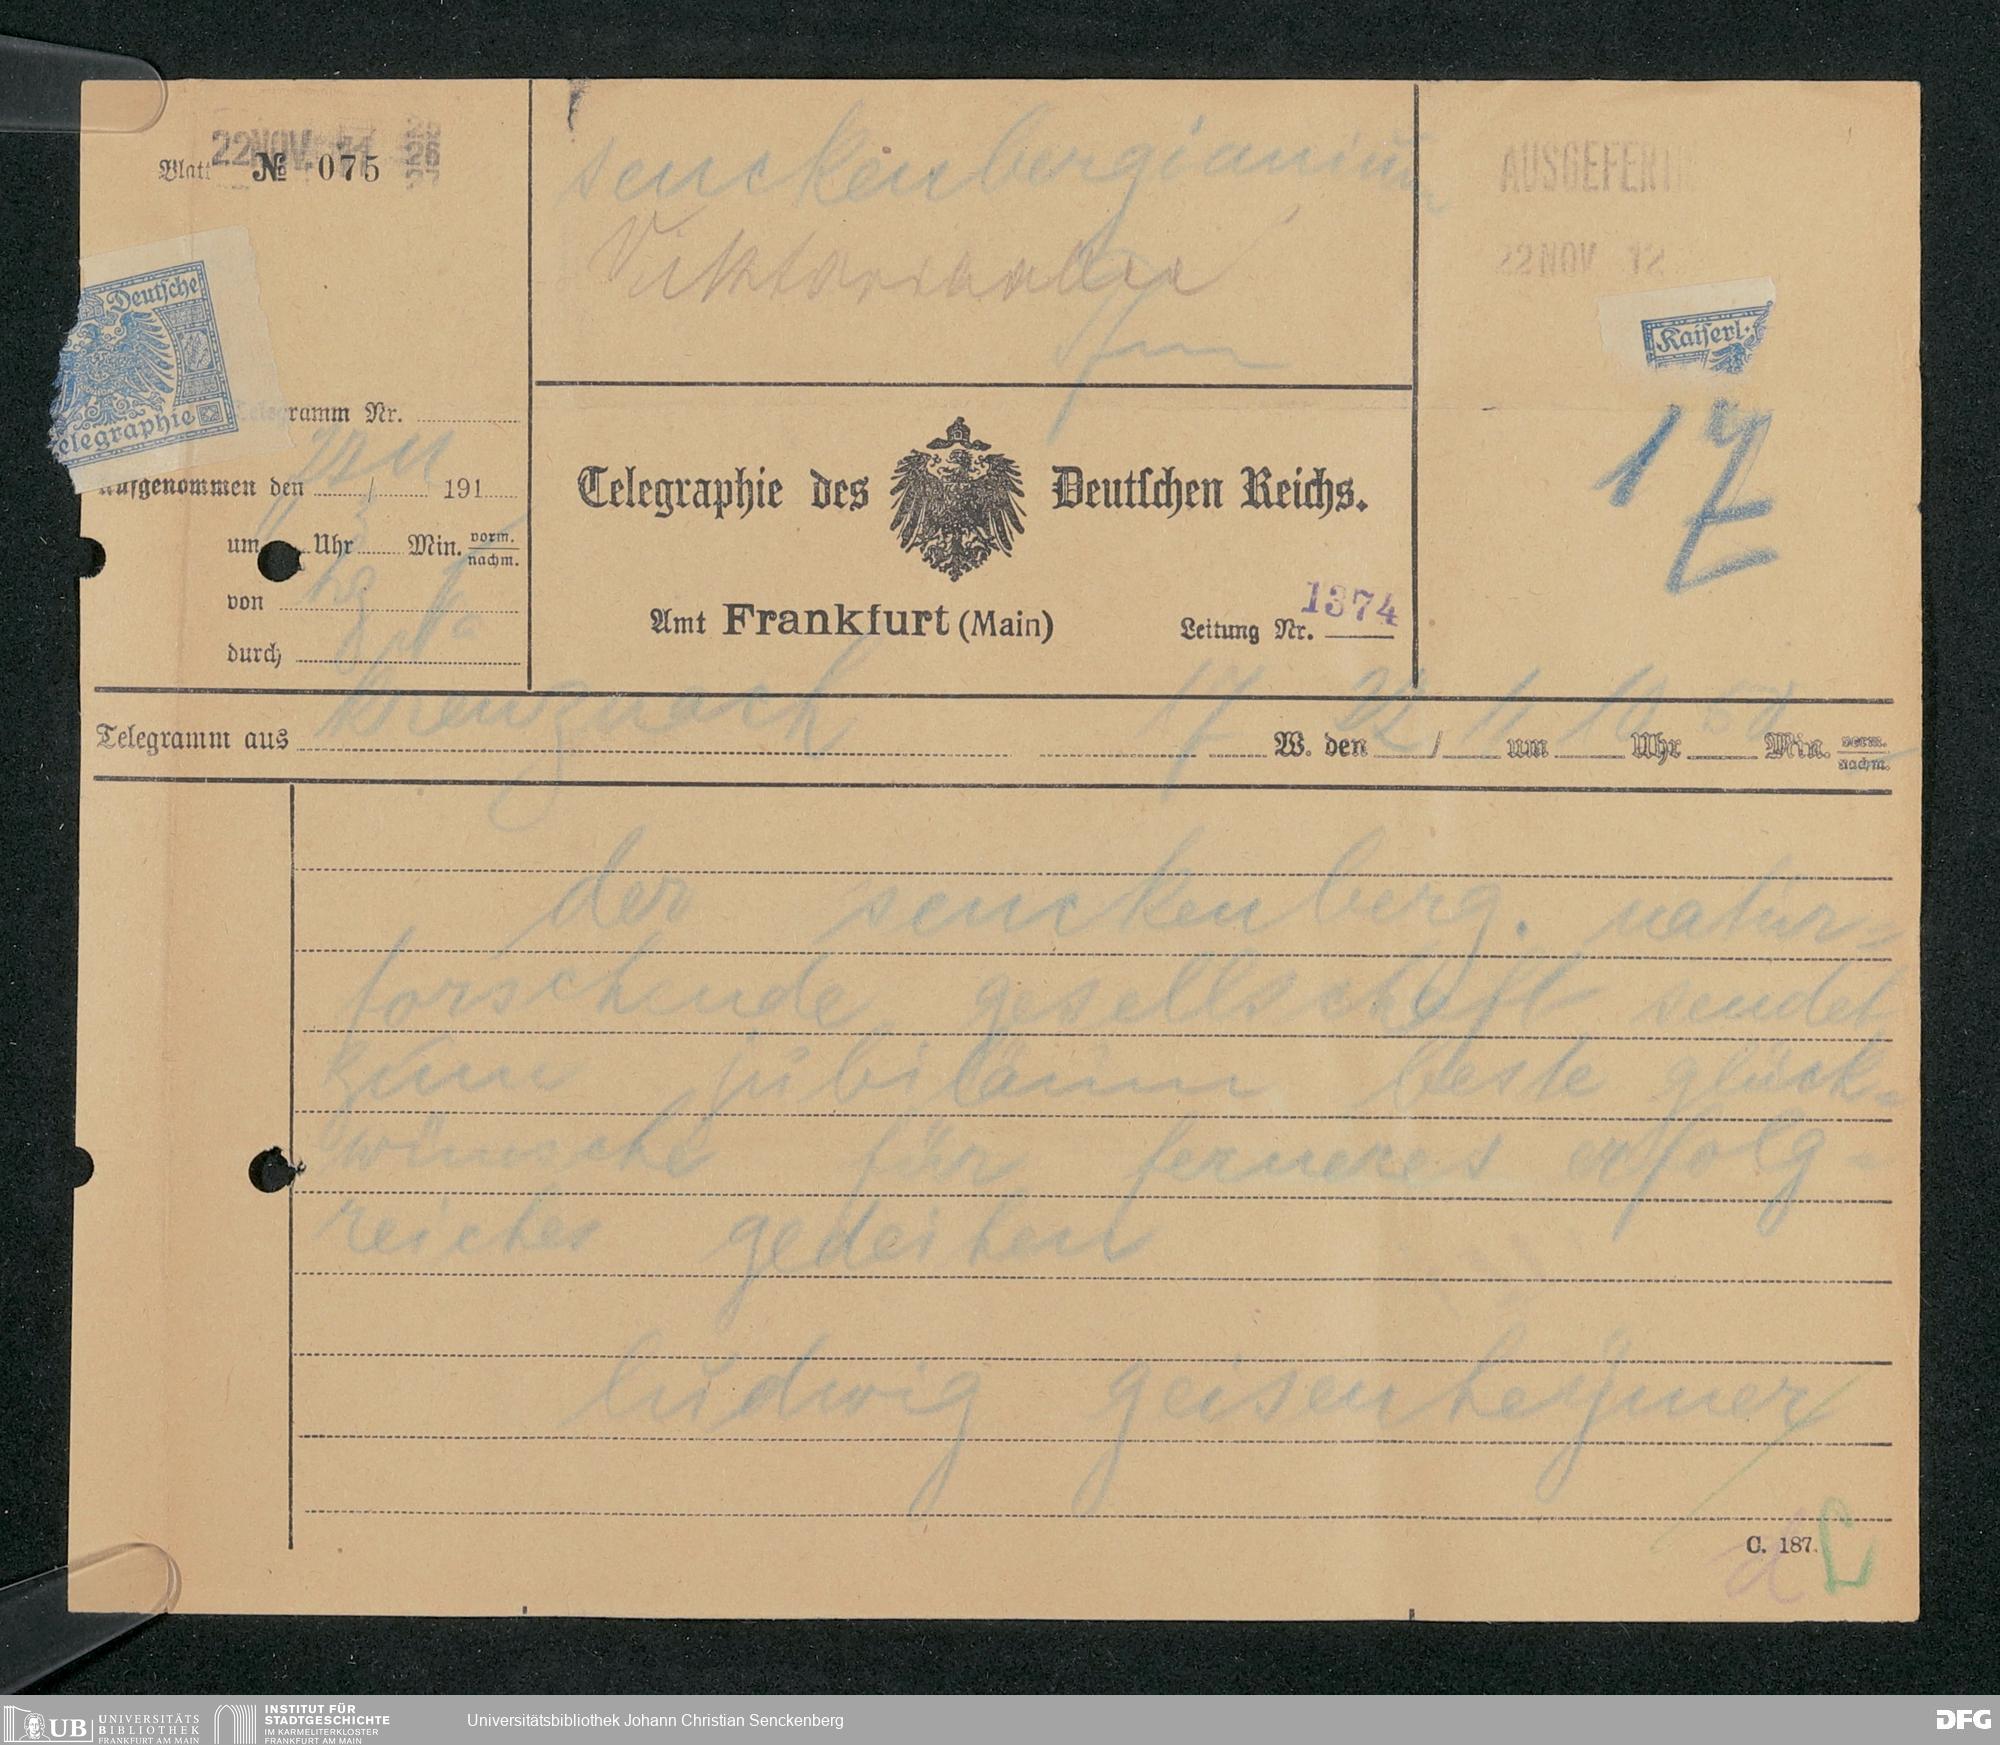 22 NOV.
Blatt № 075
senckenbergianum
Viktoriaallee
ffm
AUSGEFERTI
22 NOV 12
Kaiserl.
17
Deutsche
elegraphie
Telegramm Nr.
Aufgenommen den 22/11 191
um Uhr Min. vorm.
nachm.
von
durch
Telegraphie des Deutschen Reichs.
Amt Frankfurt (Main)
Leitung Nr. 1374
Telegramm aus kreuznach 17 W. den 22/11 um 10 Uhr 50 Min. vorm.
nachm.
der senckenberg. natur-
forschende gesellschaft sendet
zum jubiläum beste glück-
wünsche für ferneres erfolg-
reiches gedeihen
ludwig geisenheyner
C. 187.
UB UNIVERSITÄTS
BIBLIOTHEK
FRANKFURT AM MAIN
INSTITUT FÜR
STADTGESCHICHTE
IM KARMELITERKLOSTER
FRANKFURT AM MAIN
Universitätsbibliothek Johann Christian Senckenberg
DFG